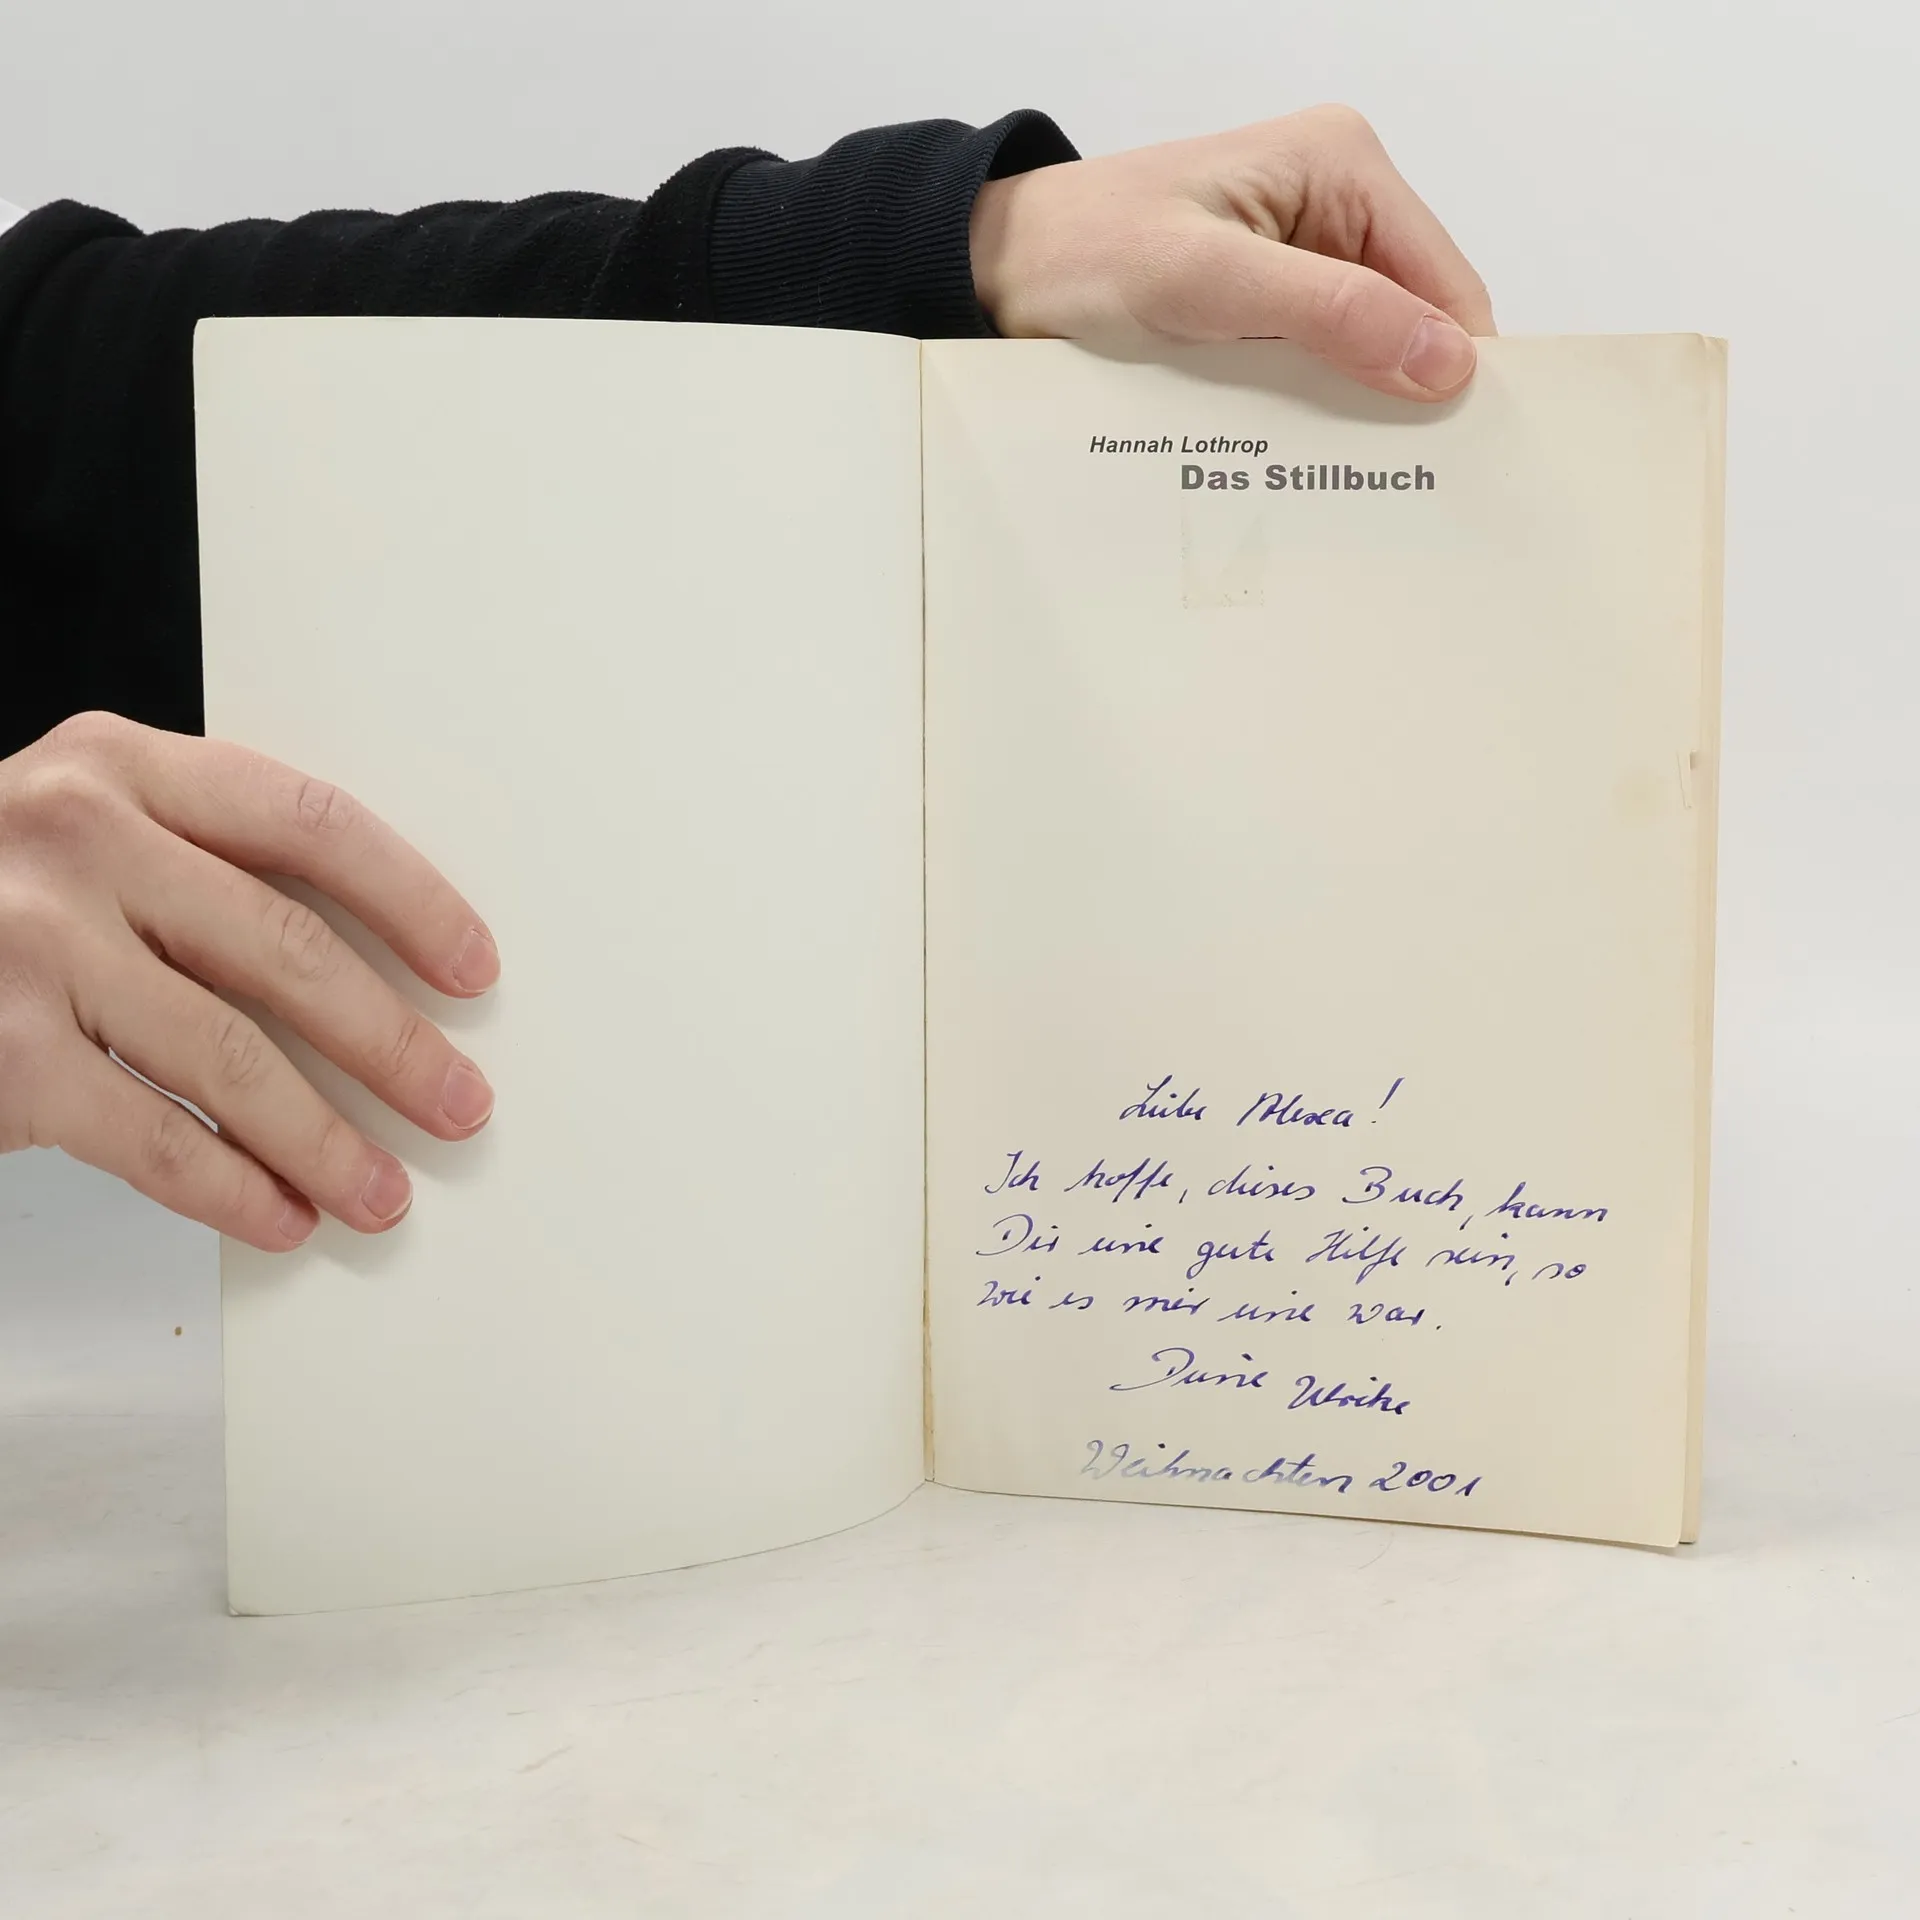 Hannah Lothrop
Das Stillbuch
Liebe Alexa!
Ich hoffe, dieses Buch, kann
Dir eine gute Hilfe sein, so
wie es mir eine war.
Deine Ulrike
Weihnachten 2001